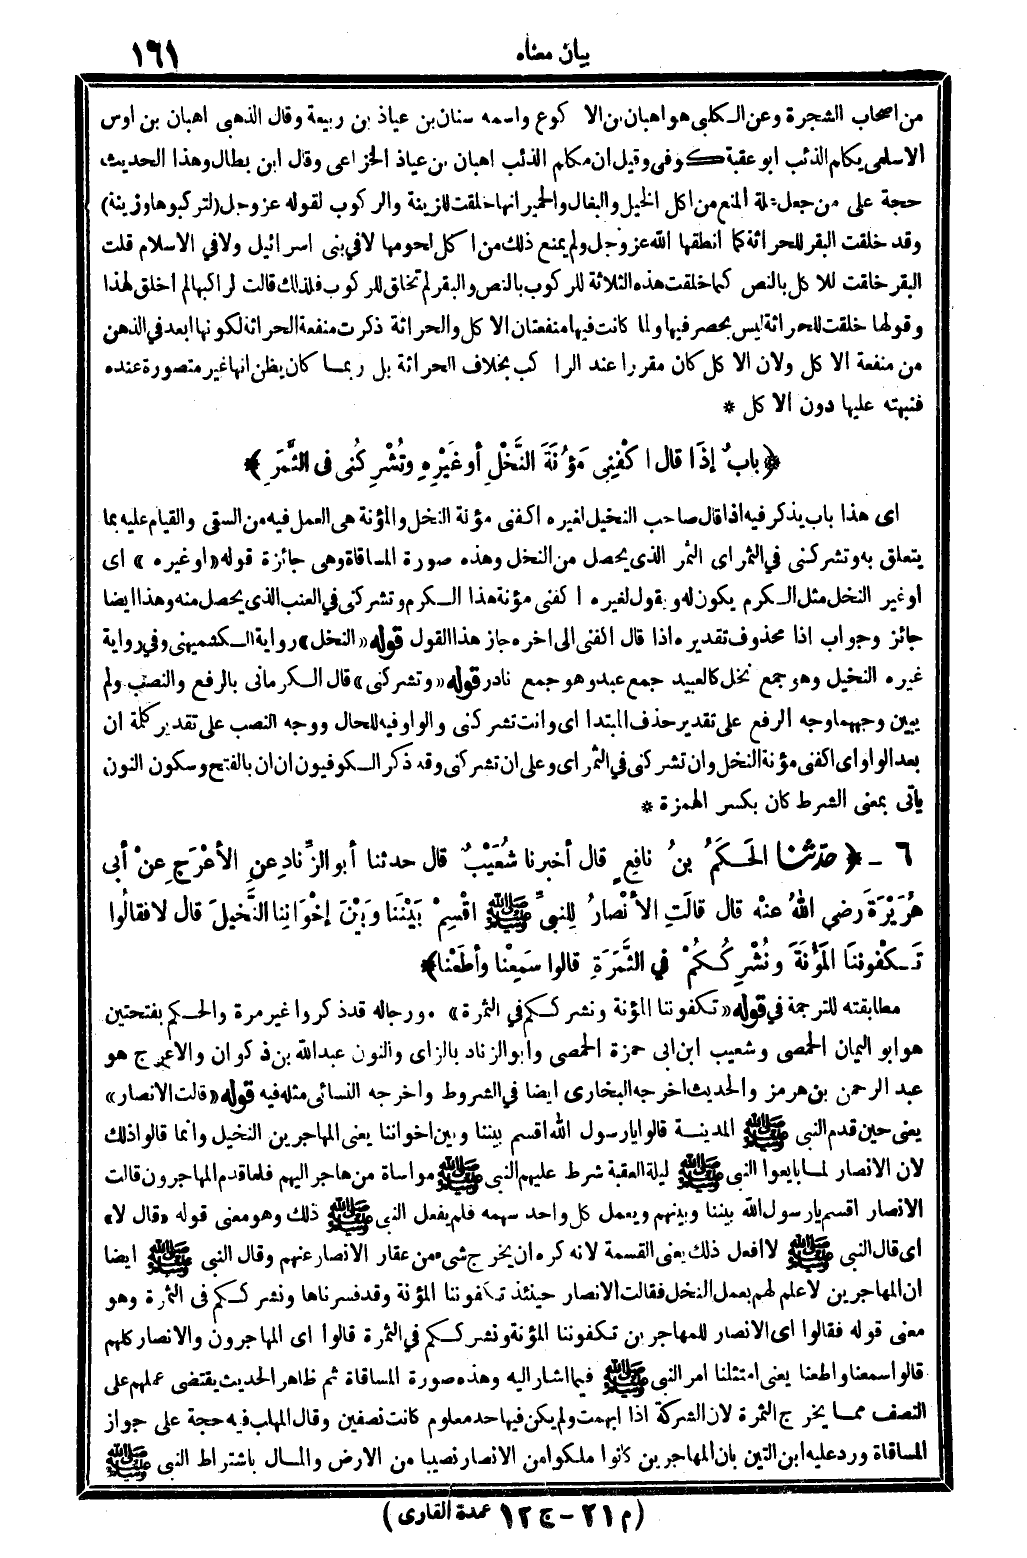 بيان معناه ١٦١
من اصحاب الشجرة وعن الكلبى هو اهبان بن الاكوع واسمه سنان بن عياذ بن ربيعة وقال الذهبى اهبان بن اوس
الاسلمى يكلم الذئب ابو عقبة كوفى وقيل ان مكلم الذئب اهبان بن عياذ الخزاعى وقال ابن بطال وهذا الحديث
حجة على من جعل علة المنع من اكل الخيل والبغال والحمير انها خلقت للزينة والركوب لقوله عز وجل (لتركبوها وزينة)
وقد خلقت البقر للحراثة كما انطقها الله عز وجل ولم يمنع ذلك من اكل لحومها لا فى بنى اسرائيل ولا فى الاسلام قلت
البقر خلقت للاكل بالنص كما خلقت هذه الثلاثة للركوب بالنص والبقر لم تخلق للركوب فلذلك قالت لراكبها لم اخلق لهذا
وقولها خلقت للحراثة ليس بحصر فيها ولما كانت فيها منفعتان الاكل والحراثة ذكرت منفعة الحراثة لكونها ابعد فى الذهن
من منفعة الاكل ولان الاكل كان مقررا عند الراكب بخلاف الحراثة بل ربما كان يظن انها غير متصورة عنده
فنبهته عليها دون الاكل *
﴿ باب إذا قال اكْفِنِى مَؤُنَةَ النَّخْلِ أوغَيْرِهِ وتُشْرِكُنى فى الثَّمَرِ ﴾
اى هذا باب يذكر فيه اذا قال صاحب النخيل لغيره اكفنى مؤنة النخل والمؤنة هى العمل فيه من السقى والقيام عليه بما
يتعلق به وتشركنى فى الثمر اى الثمر الذى يحصل من النخل وهذه صورة المساقاة وهى جائزة قوله «اوغيره» اى
اوغير النخل مثل الكرم يكون له ويقول لغيره اكفنى مؤنة هذا الكرم وتشركنى فى العنب الذى يحصل منه وهذا ايضا
جائز وجواب اذا محذوف تقديره اذا قال اكفنى الى اخره جاز هذا القول قوله «النخل» رواية الكشميهنى وفى رواية
غيره النخيل وهو جمع نخل كالعبيد جمع عبد وهو جمع نادر قوله «وتشركنى» قال الكرمانى بالرفع والنصب ولم
يبين وجههما وجه الرفع على تقدير حذف المبتدا اى وانت تشركنى والواو فيه للحال ووجه النصب على تقدير كلمة ان
بعد الواو اى اكفنى مؤنة النخل وان تشركنى فى الثمر اى وعلى ان تشركنى وقد ذكر الكوفيون ان ان بالفتح وسكون النون
يأتى بمعنى الشرط كان بكسر الهمزة *
٦ - ﴿ حدثنا الحَكَمُ بنُ نافِعٍ قال أخبرنا شُعَيْبٌ قال حدثنا أبو الزِّنادِ عنِ الأعْرَجِ عنْ أبى
هُرَيْرَةَ رضى اللهُ عنْه قال قالَتِ الأنْصارُ لِلنبىِّ ﷺ اقْسِمْ بَيْنَنا وبَيْنَ إخْوَانِنا النَّخيلَ قال لا فقالُوا
تَكْفُونَنا المَؤُنَةَ ونُشْرِكُكُمْ فى الثَّمَرَةِ قالوا سَمِعْنا وأطَعْنا ﴾
مطابقته للترجمة فى قوله «تكفوننا المؤنة ونشرككم فى الثمرة» . ورجاله قد ذكروا غير مرة والحكم بفتحتين
هو ابو اليمان الحمصى وشعيب ابن ابى حمزة الحمصى وابو الزناد بالزاى والنون عبد الله بن ذكوان والاعرج هو
عبد الرحمن بن هرمز والحديث اخرجه البخارى ايضا فى الشروط واخرجه النسائى مثله فيه قوله «قالت الانصار»
يعنى حين قدم النبى ﷺ المدينة قالوا يا رسول الله اقسم بيننا وبين اخواننا يعنى المهاجرين النخيل وانما قالوا ذلك
لان الانصار لما بايعوا النبى ﷺ ليلة العقبة شرط عليهم النبى ﷺ مواساة من هاجر اليهم فلما قدم المهاجرون قالت
الانصار اقسم يا رسول الله بيننا وبينهم ويعمل كل واحد سهمه فلم يفعل النبى ﷺ ذلك وهو معنى قوله «قال لا»
اى قال النبى ﷺ لا افعل ذلك يعنى القسمة لانه كره ان يخرج شىء من عقار الانصار عنهم وقال النبى ﷺ ايضا
ان المهاجرين لا علم لهم بعمل النخل فقالت الانصار حينئذ تكفوننا المؤنة وقد فسرناها ونشرككم فى الثمرة وهو
معنى قوله فقالوا اى الانصار للمهاجرين تكفوننا المؤنة ونشرككم فى الثمرة قالوا اى المهاجرون والانصار كلهم
قالوا سمعنا واطعنا يعنى امتثلنا امر النبى ﷺ فيما اشار اليه وهذه صورة المساقاة ثم ظاهر الحديث يقتضى عملهم على
النصف مما يخرج الثمرة لان الشركة اذا ابهمت ولم يكن فيها حد معلوم كانت نصفين وقال المهلب فيه حجة على جواز
المساقاة ورد عليه ابن التين بان المهاجرين كانوا ملكوا من الانصار نصيبا من الارض والمال باشتراط النبى ﷺ
(م ٢١ - ج ١٢ عمدة القارى)